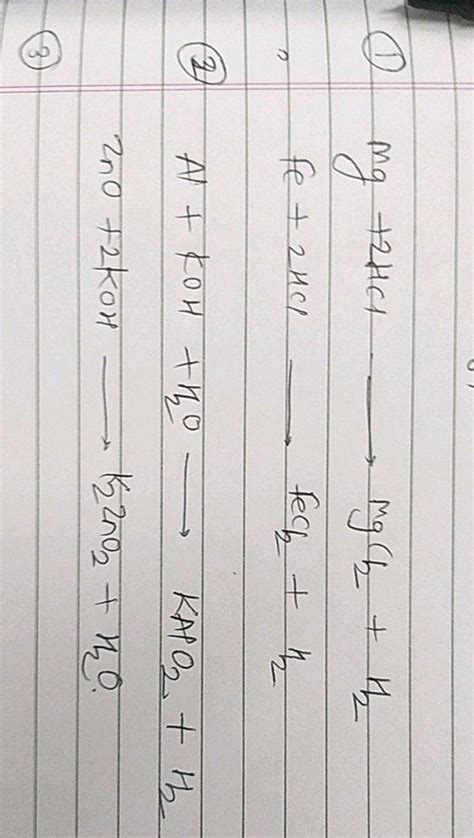 ① Mg + 2HCl → MgCl₂ + H₂
" Fe + 2HCl → FeCl₂ + H₂
② Al + KOH + H₂O → KAlO₂ + H₂
ZnO + 2KOH → K₂ZnO₂ + H₂O.
③